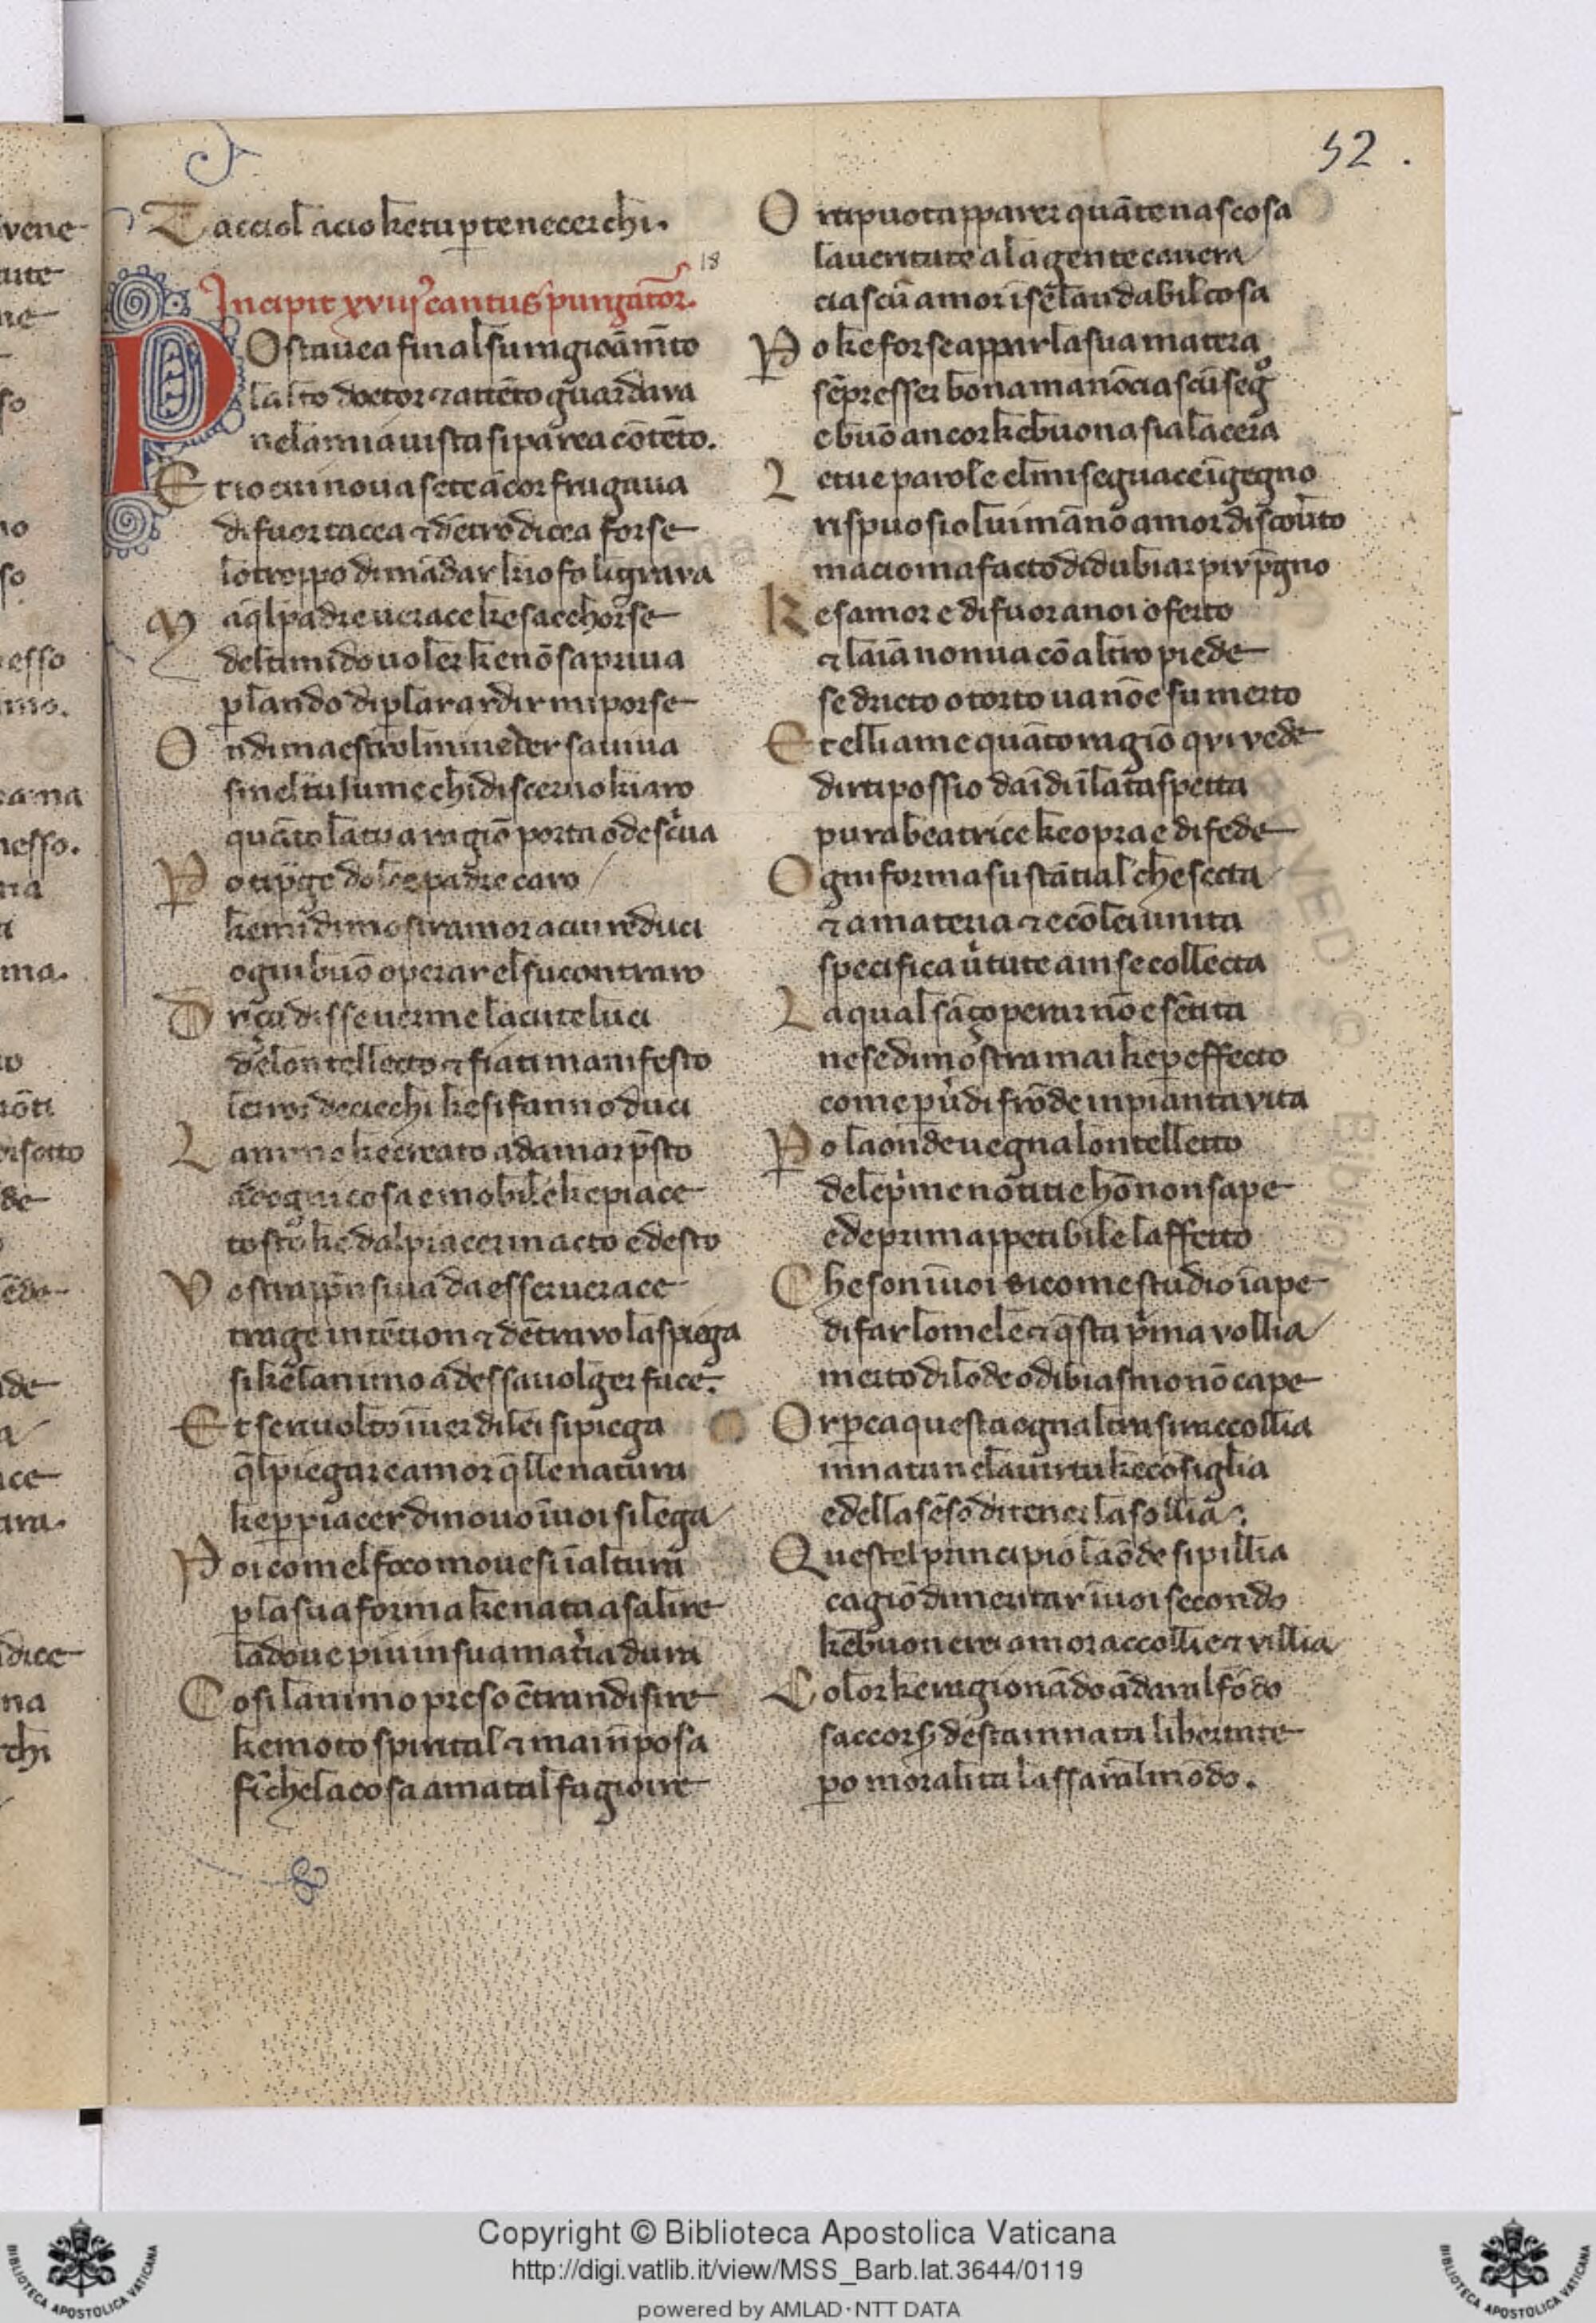 52.
Tacciolacio ketu ꝑte necerchi.
18
Incipit xviijͦ cantus pungatoꝝ.
Posta uea final su ragioām̄to
lalto doctor ⁊ attēto guardava
nela mia uista si parea cōtēto.
Et io cui noua sete ācor frugaua
di fuor tacea ⁊ dētro dicea forse
lo troppo dimādar kio fo li grava
Ma q̄l padre uerace ke sacchorse
del timido uoler ke nō sapriua
ꝑlando di ꝑlar ardir mi porse
Ondi maestrol mi ueder sauiua
si nel tu lume chi discerno kiaro
quāto la tva ragiō porta o descͥua
Po ti p̄go dolce padre caro
ke mi dimostri amor a cui reduci
ogni buō operar el su contraro
Driça disse uer me lacute luci
de lontellecto ⁊ fiati manifesto
lerror de ciechi ke si fanno duci
Lanimo ke creato ad amar p̄sto
ad ogni cosa e mobile ke piace
tosto ke dal piacer in acto e desto
Vostra app̄nsiua da esser uerace
trage intētion ⁊ dētra vo la spiega
si ke lanimo ad essa uolger face.
Et se riuolto īuer di lei si piega
q̄l piegar e amor q̄lle natura
ke ꝑ piacer di nouo ī uoi si lega
Poi comel foco mouesi ī altura
ꝑ la sua forma ke nata a salire
la doue piu in sua matͥia dura
Cosi lanimo preso ētra n disire
ke moto spirital ⁊ mai n̄ posa
fi che la cosa amata il fa gioire
Or ti puot apparer quāte nascosa
la ueritate a la gente cauera
ciascū amor ī se laudabil cosa
Po ke forse appar la sua matera
sēpr esser bona ma nō ciascū segͦ
e buō ancor ke buona sia la cera
Le tue parole el mi seguace īgegno
rispuosio lui māno amor discouͥto
ma cio ma facto di dubiar piv p̄gno
Ke samor e di fuor a noi oferto
⁊ laīa non ua cō altro piede
se dricto o torto ua nō e su merto
Et elli a me quāto ragiō qvi vede
dir ti possio da īdi ī la taspetta
pur a beatrice ke opra e di fede
Ogni forma sustātial che secta
⁊ a materia ⁊ e cō lei unita
specifica uͥtute a in se collecta
La qual sāçoperar nō e sētita
ne se dimostra mai ke ꝑ effecto
come ꝑ uͥdi frōde in pianta vita
Po la onde uegna lontelletto
de le pͥme notitie hō non sape
e de prim appetibile laffetto
Che son ī uoi si come studio ī ape
di far lo mele ⁊ q̄sta pͥma vollia
merto di lode o di biasmo nō cape
Or ꝑ ca questa ognaltra si raccollia
innata ne la uirtu ke cōsiglia
e della sēso di tener la sollia.
Questel principio la ōde si pillia
cagiō di meritar ī uoi secondo
ke buon e rei amor accollie ⁊ villia
Color ke ragionādo ādaral fōdo
saccors̄ desta innata libertate
po moralita lassaral mōdo.
Copyright © Biblioteca Apostolica Vaticana
http://digi.vatlib.it/view/MSS_Barb.lat.3644/0119
powered by AMLAD·NTT DATA
BIBLIOTECA APOSTOLICA VATICANA
BIBLIOTECA APOSTOLICA VATICANA